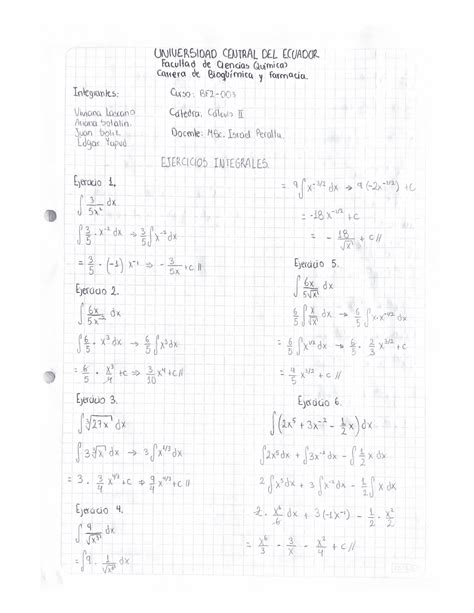 UNIVERSIDAD CENTRAL DEL ECUADOR
Facultad de Ciencias Químicas
Carrera de Bioquímica y Farmacia.
Integrantes: Curso: BF2-003
Viviana Lascano Cátedra: Cálculo II
Ariana Sotalin
Juan Solis Docente: MSc. Israel Peralta.
Edgar Yapud
EJERCICIOS INTEGRALES.
Ejercicio 1.
∫ 3/5x² dx
∫ 3/5 · x⁻² dx → 3/5 ∫ x⁻² dx
= 3/5 · (-1) x⁻¹ ⇒ - 3/5x + c//
Ejercicio 2.
∫ 6x/5x⁻² dx
∫ 6/5 · x³ dx → 6/5 ∫ x³ dx
= 6/5 · x⁴/4 + c ⇒ 3/10 x⁴ + c//
Ejercicio 3.
∫ ∛27x⁷ dx
∫ 3 ∛x⁷ dx → 3 ∫ x⁴ᐟ³ dx
= 3 · 3/4 x⁴ᐟ³ + c ⇒ 9/4 x⁴ᐟ³ + c//
Ejercicio 4.
∫ 9/√x³ dx
= ∫ 9 · 1/√x³ dx
= 9 ∫ x⁻³ᐟ² dx → 9 (-2x⁻¹ᐟ²) + C
= -18 x⁻¹ᐟ² + c
= - 18/√x + c//
Ejercicio 5.
∫ 6x/5√x dx
6/5 ∫ x/√x dx → 6/5 ∫ x · x⁻¹ᐟ² dx
6/5 ∫ x¹ᐟ² dx → 6/5 · 2/3 x³ᐟ² + c
= 4/5 x³ᐟ² + c //
Ejercicio 6.
∫ (2x⁵ + 3x⁻² - 1/2 x) dx.
∫ 2x⁵ dx + ∫ 3x⁻² dx - ∫ 1/2 x dx
2 ∫ x⁵ dx + 3 ∫ x⁻² dx - 1/2 ∫ x dx
2 · x⁶/6 dx + 3 (-1x⁻¹) - 1/2 · x²/2
= x⁶/3 - 3/x - x²/4 + c //